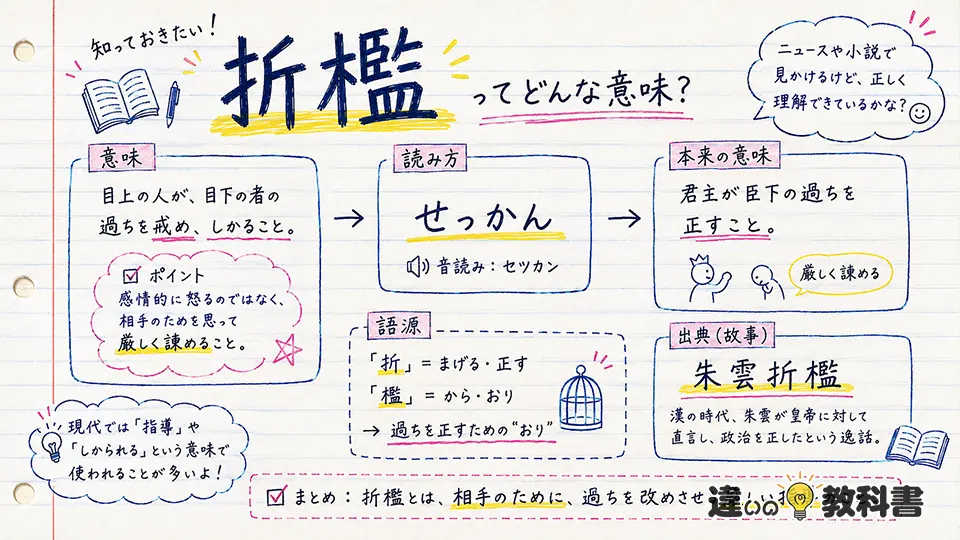 知っておきたい!
折檻
ってどんな意味?
ニュースや小説で
見かけるけど、正しく
理解できているかな?
意味
目上の人が、目下の者の
過ちを戒め、しかること。
ポイント
感情的に怒るのではなく、
相手のためを思って
厳しく諫めること。
読み方
せっかん
音読み:セツカン
本来の意味
君主が臣下の過ちを
正すこと。
厳しく諫める
語源
「折」=まげる・正す
「檻」=から・おり
→ 過ちを正すための“おり”
出典(故事)
朱雲折檻
漢の時代、朱雲が皇帝に対して
直言し、政治を正したという逸話。
現代では「指導」や
「しかられる」という意味で
使われることが多いよ!
まとめ:折檻とは、相手のために、過ちを改めさせ
違いの教科書